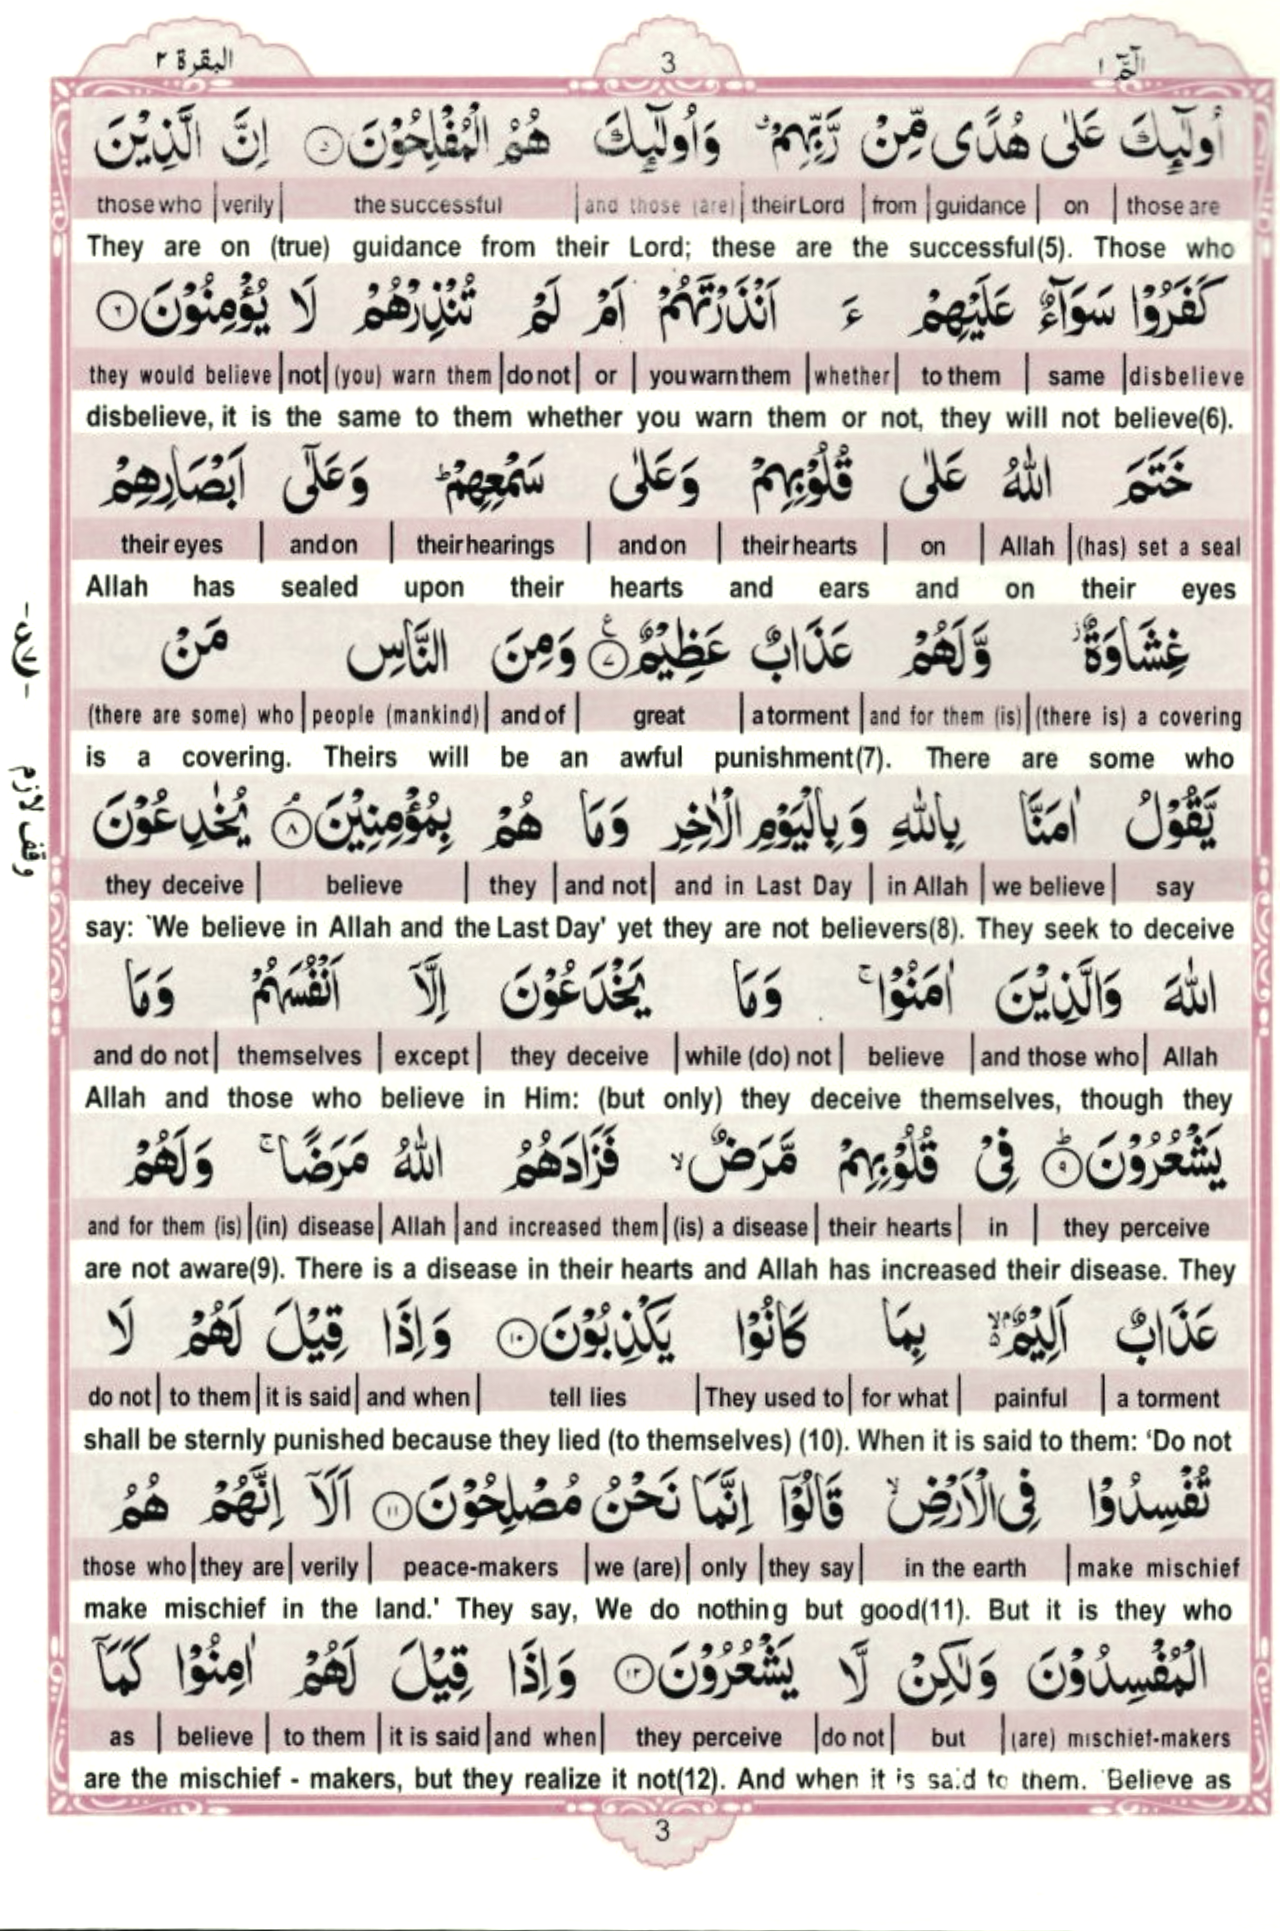 البقرة ٢
3
الٓمّٓ ١
اُولٰٓئِكَ عَلٰى هُدًى مِّنْ رَّبِّهِمْ ۙ وَاُولٰٓئِكَ هُمُ الْمُفْلِحُوْنَ ۝٥ اِنَّ الَّذِيْنَ
those who | verily | the successful | and those (are) | their Lord | from | guidance | on | those are
They are on (true) guidance from their Lord; these are the successful(5). Those who
كَفَرُوْا سَوَآءٌ عَلَيْهِمْ ءَ اَنْذَرْتَهُمْ اَمْ لَمْ تُنْذِرْهُمْ لَا يُؤْمِنُوْنَ ۝٦
they would believe | not | (you) warn them | do not | or | you warn them | whether | to them | same | disbelieve
disbelieve, it is the same to them whether you warn them or not, they will not believe(6).
خَتَمَ اللّٰهُ عَلٰى قُلُوْبِهِمْ وَعَلٰى سَمْعِهِمْ ؕ وَعَلٰٓى اَبْصَارِهِمْ
their eyes | and on | their hearings | and on | their hearts | on | Allah | (has) set a seal
Allah has sealed upon their hearts and ears and on their eyes
غِشَاوَةٌ ۫ وَّلَهُمْ عَذَابٌ عَظِيْمٌ ۝٧ وَمِنَ النَّاسِ مَنْ
(there are some) who | people (mankind) | and of | great | a torment | and for them (is) | (there is) a covering
is a covering. Theirs will be an awful punishment(7). There are some who
وقف لازم
يَّقُوْلُ اٰمَنَّا بِاللّٰهِ وَبِالْيَوْمِ الْاٰخِرِ وَمَا هُمْ بِمُؤْمِنِيْنَ ۝٨ يُخٰدِعُوْنَ
they deceive | believe | they | and not | and in Last Day | in Allah | we believe | say
say: `We believe in Allah and the Last Day' yet they are not believers(8). They seek to deceive
اللّٰهَ وَالَّذِيْنَ اٰمَنُوْا ۚ وَمَا يَخْدَعُوْنَ اِلَّآ اَنْفُسَهُمْ وَمَا
and do not | themselves | except | they deceive | while (do) not | believe | and those who | Allah
Allah and those who believe in Him: (but only) they deceive themselves, though they
يَشْعُرُوْنَ ۝٩ؕ فِيْ قُلُوْبِهِمْ مَّرَضٌ ۙ فَزَادَهُمُ اللّٰهُ مَرَضًا ۚ وَلَهُمْ
and for them (is) | (in) disease | Allah | and increased them | (is) a disease | their hearts | in | they perceive
are not aware(9). There is a disease in their hearts and Allah has increased their disease. They
عَذَابٌ اَلِيْمٌ ۙ بِمَا كَانُوْا يَكْذِبُوْنَ ۝١٠ وَاِذَا قِيْلَ لَهُمْ لَا
do not | to them | it is said | and when | tell lies | They used to | for what | painful | a torment
shall be sternly punished because they lied (to themselves) (10). When it is said to them: ‘Do not
تُفْسِدُوْا فِى الْاَرْضِ ۙ قَالُوْٓا اِنَّمَا نَحْنُ مُصْلِحُوْنَ ۝١١ اَلَآ اِنَّهُمْ هُمُ
those who | they are | verily | peace-makers | we (are) | only | they say | in the earth | make mischief
make mischief in the land.' They say, We do nothing but good(11). But it is they who
الْمُفْسِدُوْنَ وَلٰكِنْ لَّا يَشْعُرُوْنَ ۝١٢ وَاِذَا قِيْلَ لَهُمْ اٰمِنُوْا كَمَآ
as | believe | to them | it is said | and when | they perceive | do not | but | (are) mischief-makers
are the mischief - makers, but they realize it not(12). And when it is said to them. `Believe as
3